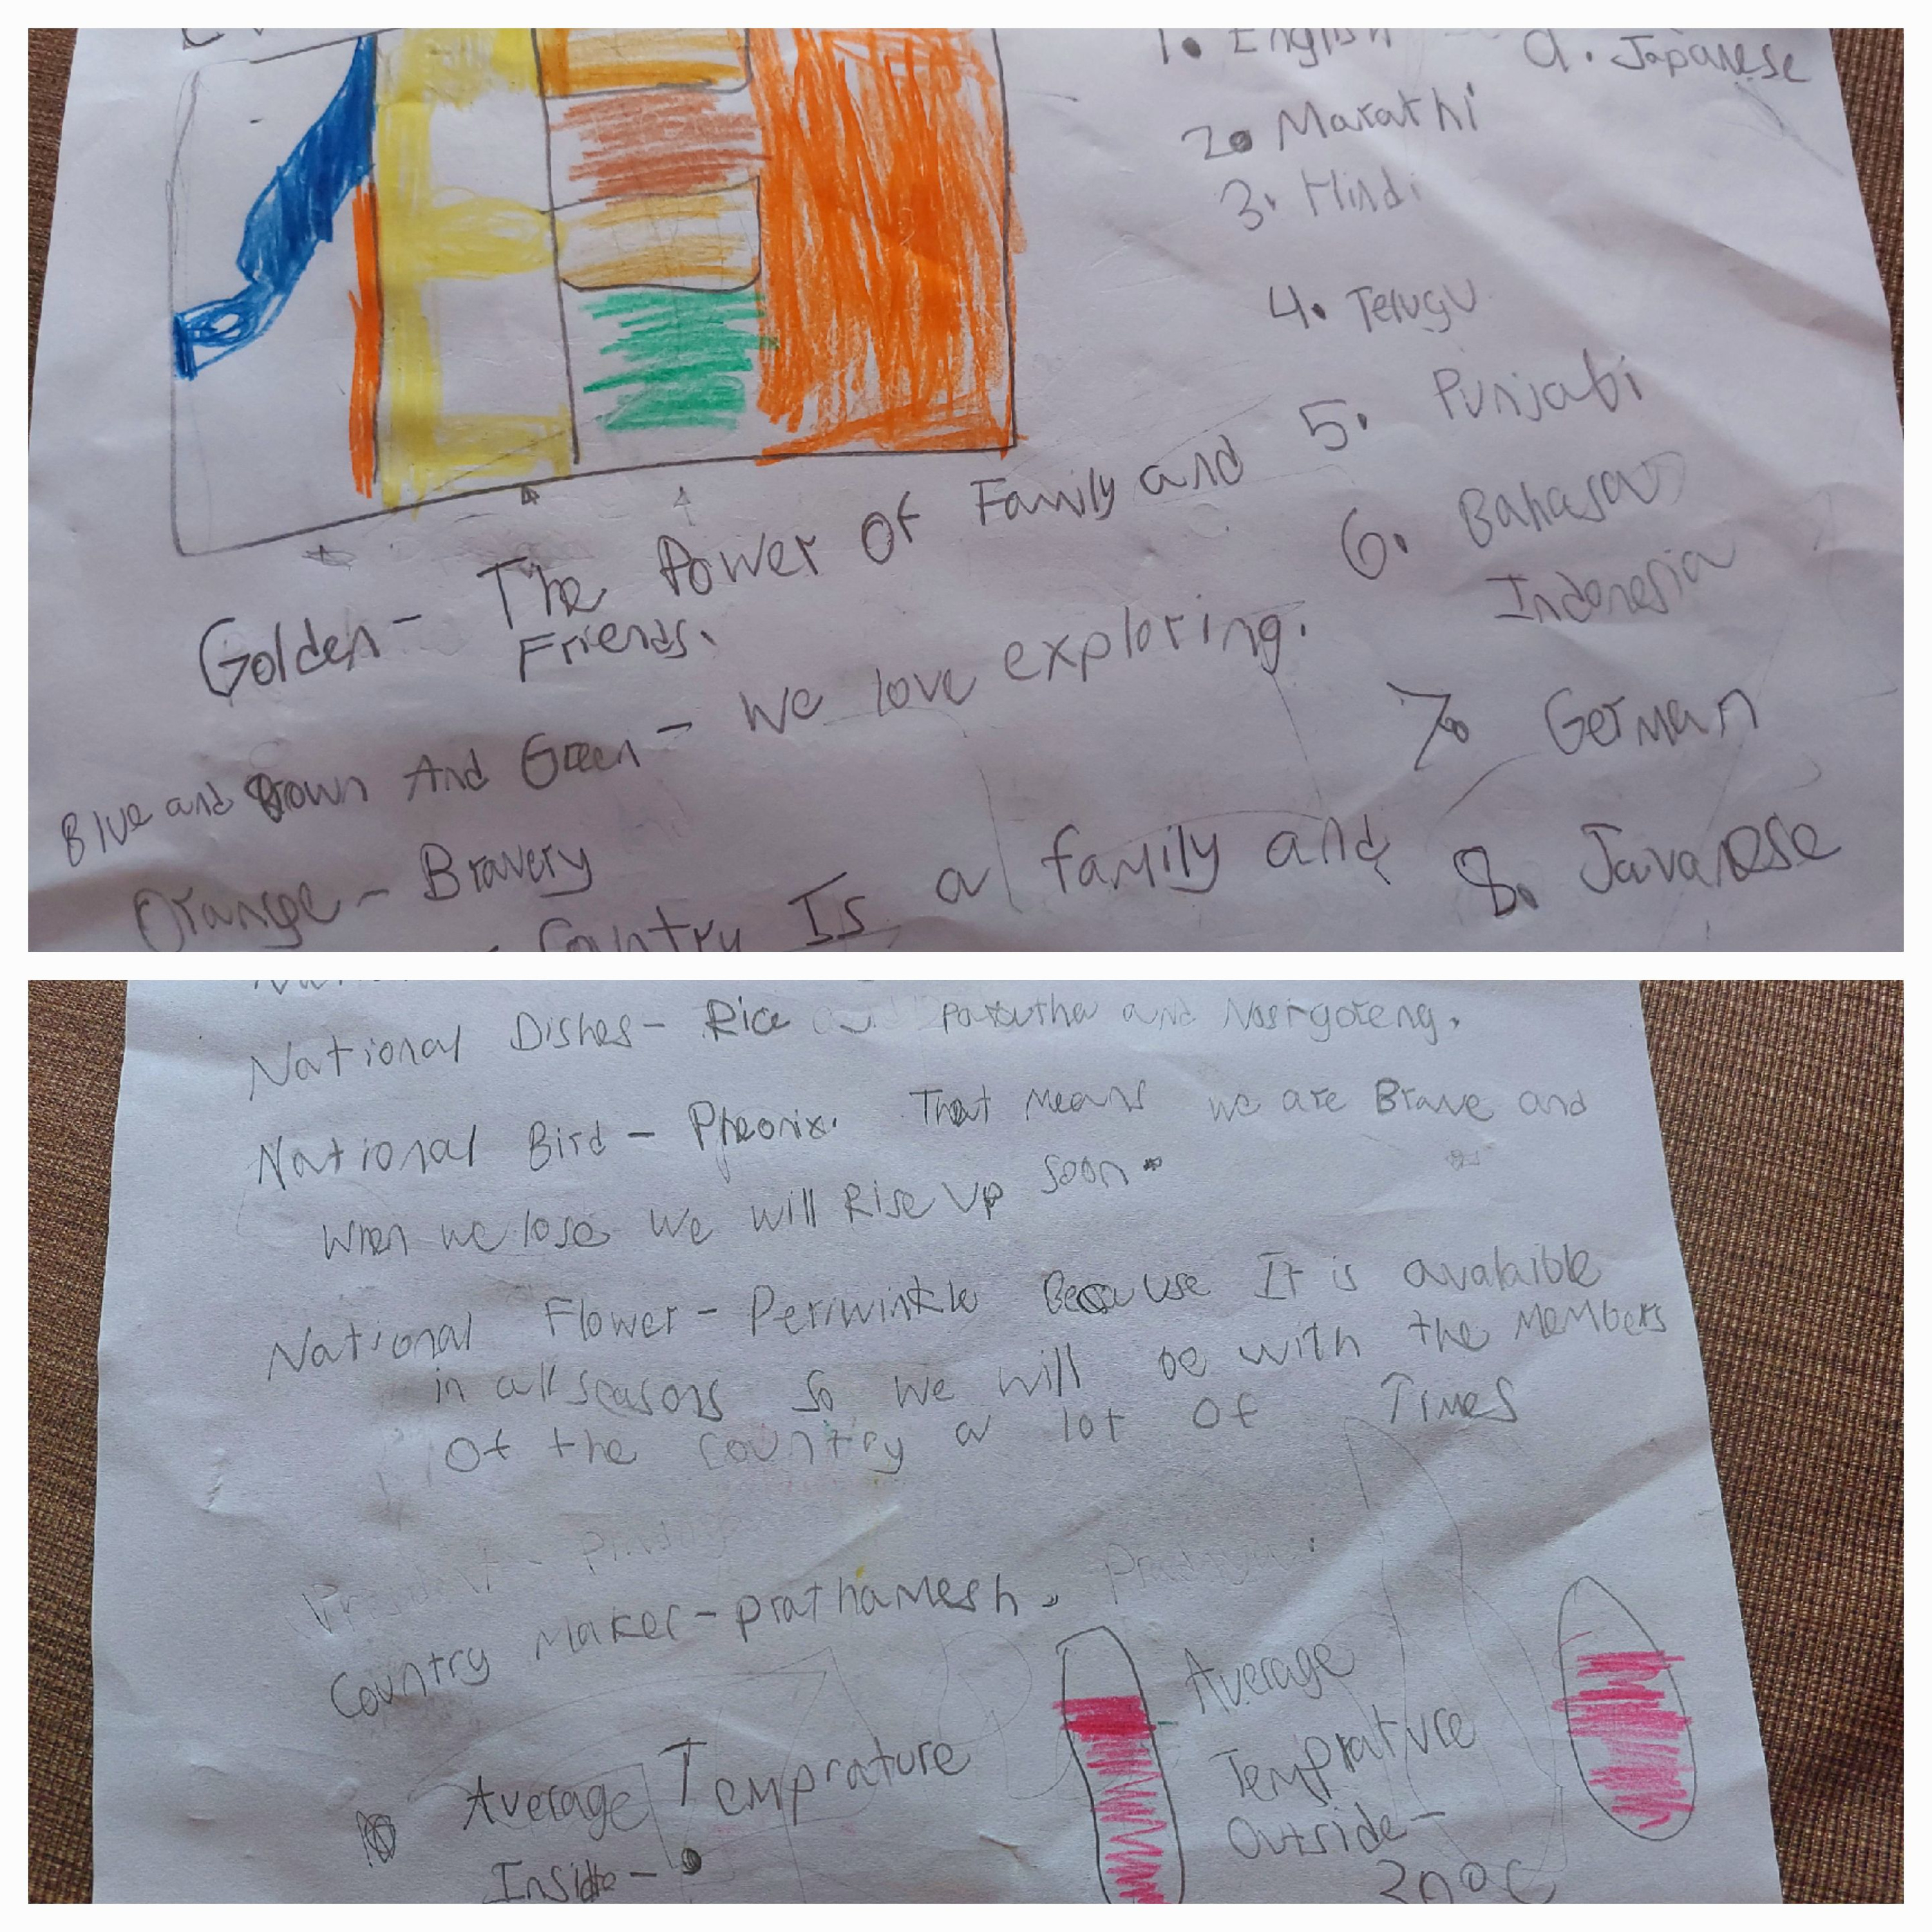 1. English
9. Japanese
2. Marathi
3. Hindi
4. Telugu
5. Punjabi
6. Bahasa
Indonesia
7. German
8. Javanese
Golden - The Power Of Family and
Friends.
Blue and Brown And Green - We love exploring.
Orange - Bravery
Country Is a family and
National Dishes - Rice and Nasigoreng.
National Bird - Pheonix. That Means we are Brave and
When we lose we will Rise Up soon.
National Flower - Periwinkle Because It is avalaible
in all seasons So we will be with the Members
Of the country a lot Of Times
Country Maker - prathamesh.
Average Temprature
Inside -
Average
Temprature
Outside -